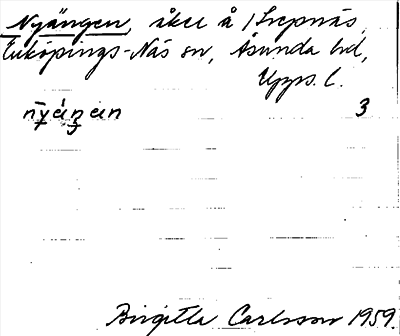 Nyängen, åker å Skepnäs,
Enköpings-Näs sn, Åsunda hd,
Upps. l.
nỳä́ŋan 3
Birgitta Carlsson 1959.